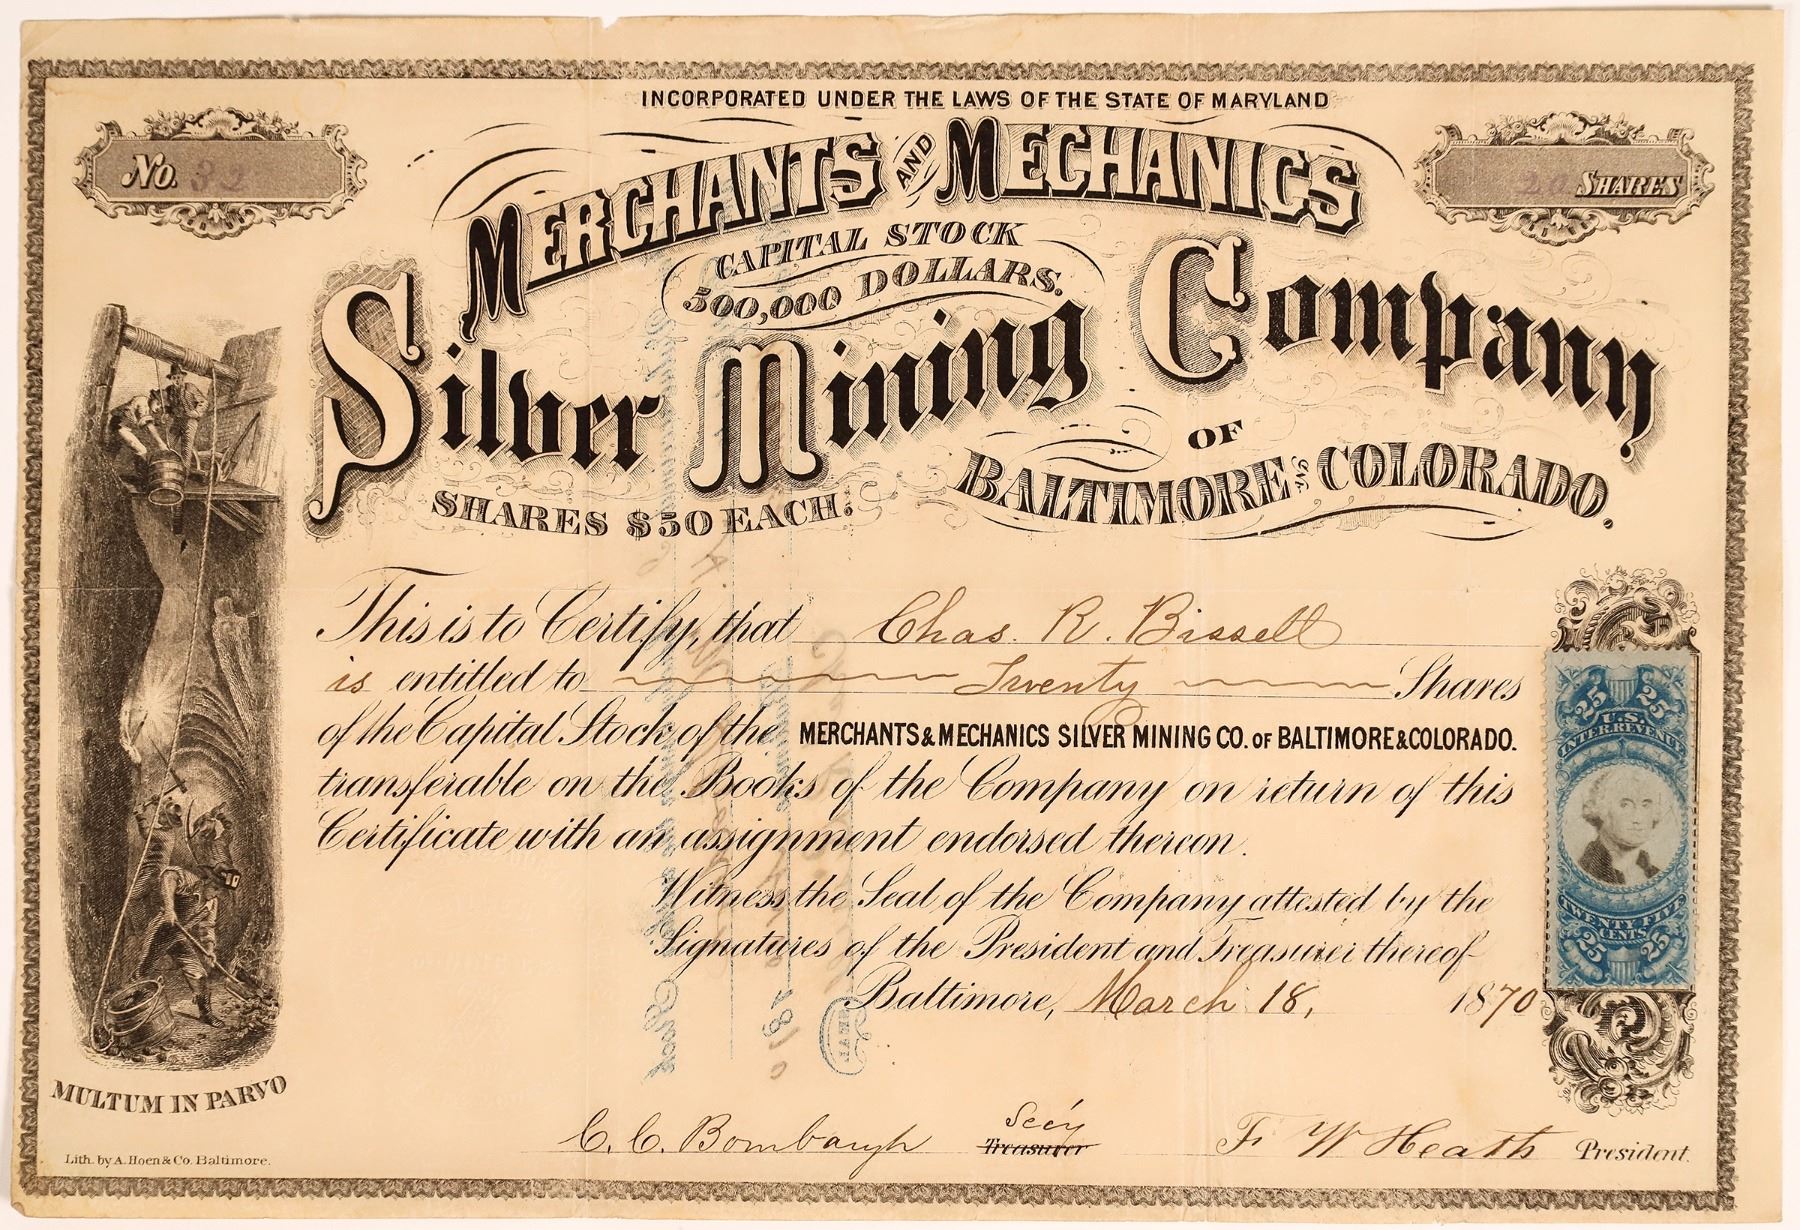 INCORPORATED UNDER THE LAWS OF THE STATE OF MARYLAND
No. 32
20 SHARES
MERCHANTS AND MECHANICS
CAPITAL STOCK
500,000 DOLLARS.
Silver Mining Company
SHARES $50 EACH.
OF
BALTIMORE AND COLORADO.
This is to Certify, that Chas. R. Bissell
is entitled to Twenty Shares
of the Capital Stock of the MERCHANTS & MECHANICS SILVER MINING CO. OF BALTIMORE & COLORADO.
transferable on the Books of the Company on return of this
Certificate with an assignment endorsed thereon.
Witness the Seal of the Company attested by the
Signatures of the President and Treasurer thereof
Baltimore, March 18, 1870
U.S.
INTER. REVENUE
25 25
TWENTY FIVE
CENTS
25 25
MULTUM IN PARVO
C. C. Bombaugh Sec'y Treasurer
F. W. Heath President.
Lith. by A. Hoen & Co. Baltimore.